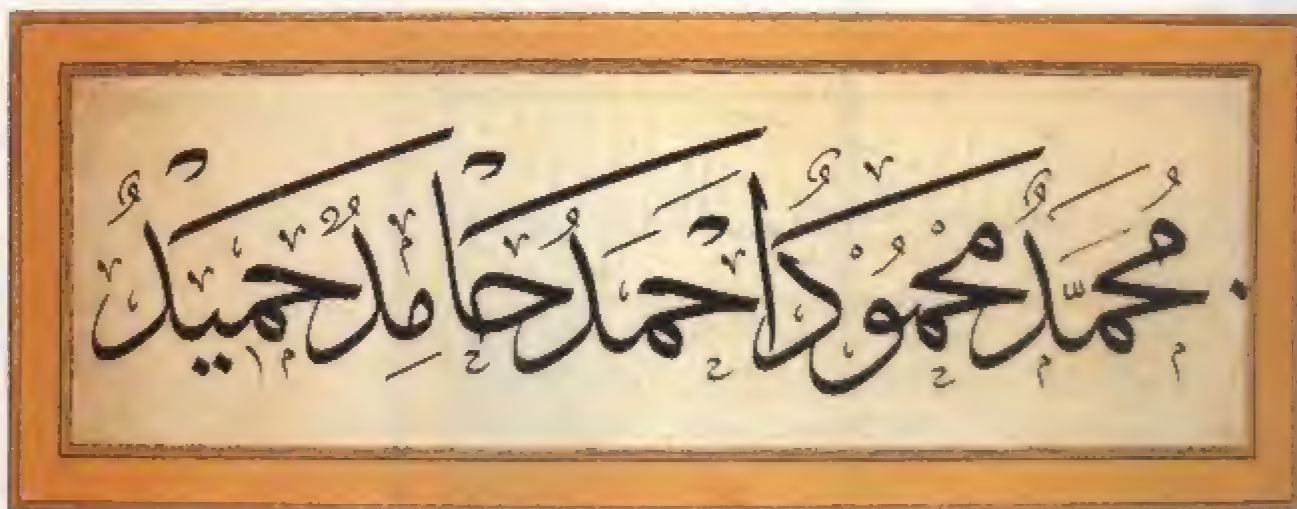 مُحَمَّدٌ مَحْمُوْدٌ اَحْمَدُ حَامِدٌ حَمِيْدٌ